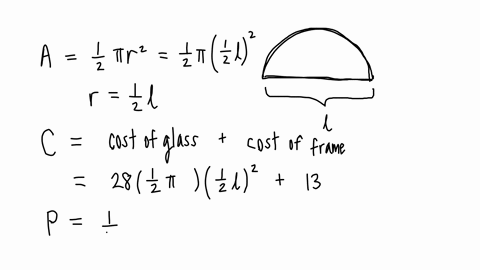 A = 1/2 πr² = 1/2 π(1/2 l)²
r = 1/2 l
l
C = cost of glass + cost of frame
= 28(1/2 π )(1/2 l)² + 13
P = 1/